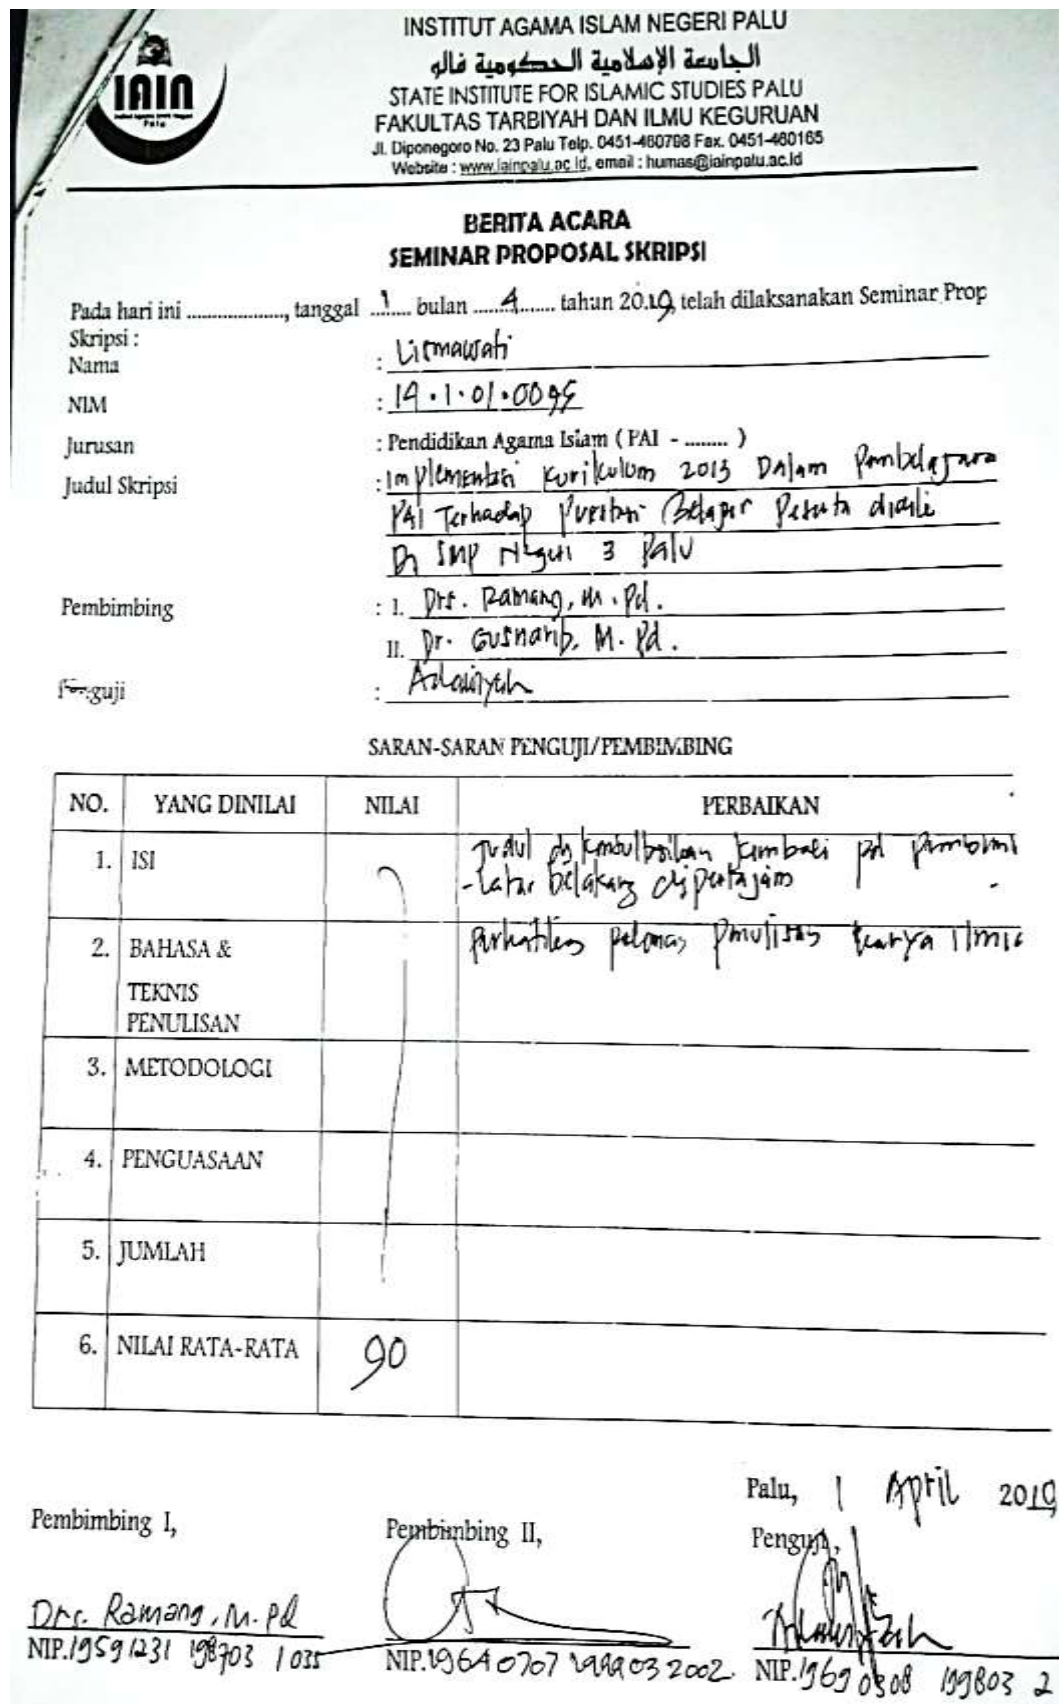 IAIN
Palu
INSTITUT AGAMA ISLAM NEGERI PALU
الجامعة الإسلامية الحكومية فالو
STATE INSTITUTE FOR ISLAMIC STUDIES PALU
FAKULTAS TARBIYAH DAN ILMU KEGURUAN
Jl. Diponegoro No. 23 Palu Telp. 0451-460798 Fax. 0451-460165
Website : www.iainpalu.ac.id, email : humas@iainpalu.ac.id
BERITA ACARA
SEMINAR PROPOSAL SKRIPSI
Pada hari ini ...................., tanggal 1 bulan 4 tahun 2019, telah dilaksanakan Seminar Prop
Skripsi :
Nama : Lismawati
NIM : 14.1.01.0095
Jurusan : Pendidikan Agama Islam ( PAI - ........ )
Judul Skripsi : Implementasi Kurikulum 2013 Dalam Pembelajara
PAI Terhadap Prestasi Belajar Peserta didik
Di SMP Negeri 3 Palu
Pembimbing : I. Drs. Ramang, M.Pd.
II. Dr. Gusnarib, M.Pd.
Penguji : Adawiyah
SARAN-SARAN PENGUJI/PEMBIMBING
NO. YANG DINILAI NILAI PERBAIKAN
1. ISI Judul di konsultasikan kembali pd pembimbi
- Latar belakang dipertajam
2. BAHASA & Perhatikan pedoman penulisan karya ilmia
TEKNIS
PENULISAN
3. METODOLOGI
4. PENGUASAAN
5. JUMLAH
6. NILAI RATA-RATA 90
Palu, 1 April 2019
Pembimbing I, Pembimbing II, Penguji,
Drs. Ramang, M.Pd Adawiyah
NIP.19591231 198703 1 035 NIP.19640707 199903 2002 NIP.19690308 199803 2